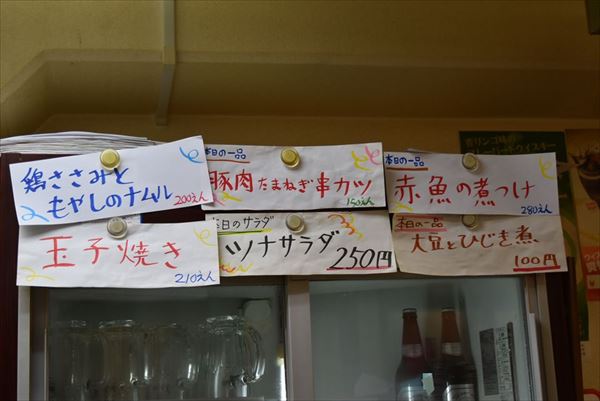 鶏ささみと
もやしのナムル
200えん
豚肉たまねぎ串カツ
150えん
本日の一品
赤魚の煮つけ
280えん
玉子焼き
210えん
本日のサラダ
ツナサラダ
250円
本日の一品
大豆とひじき煮
100円